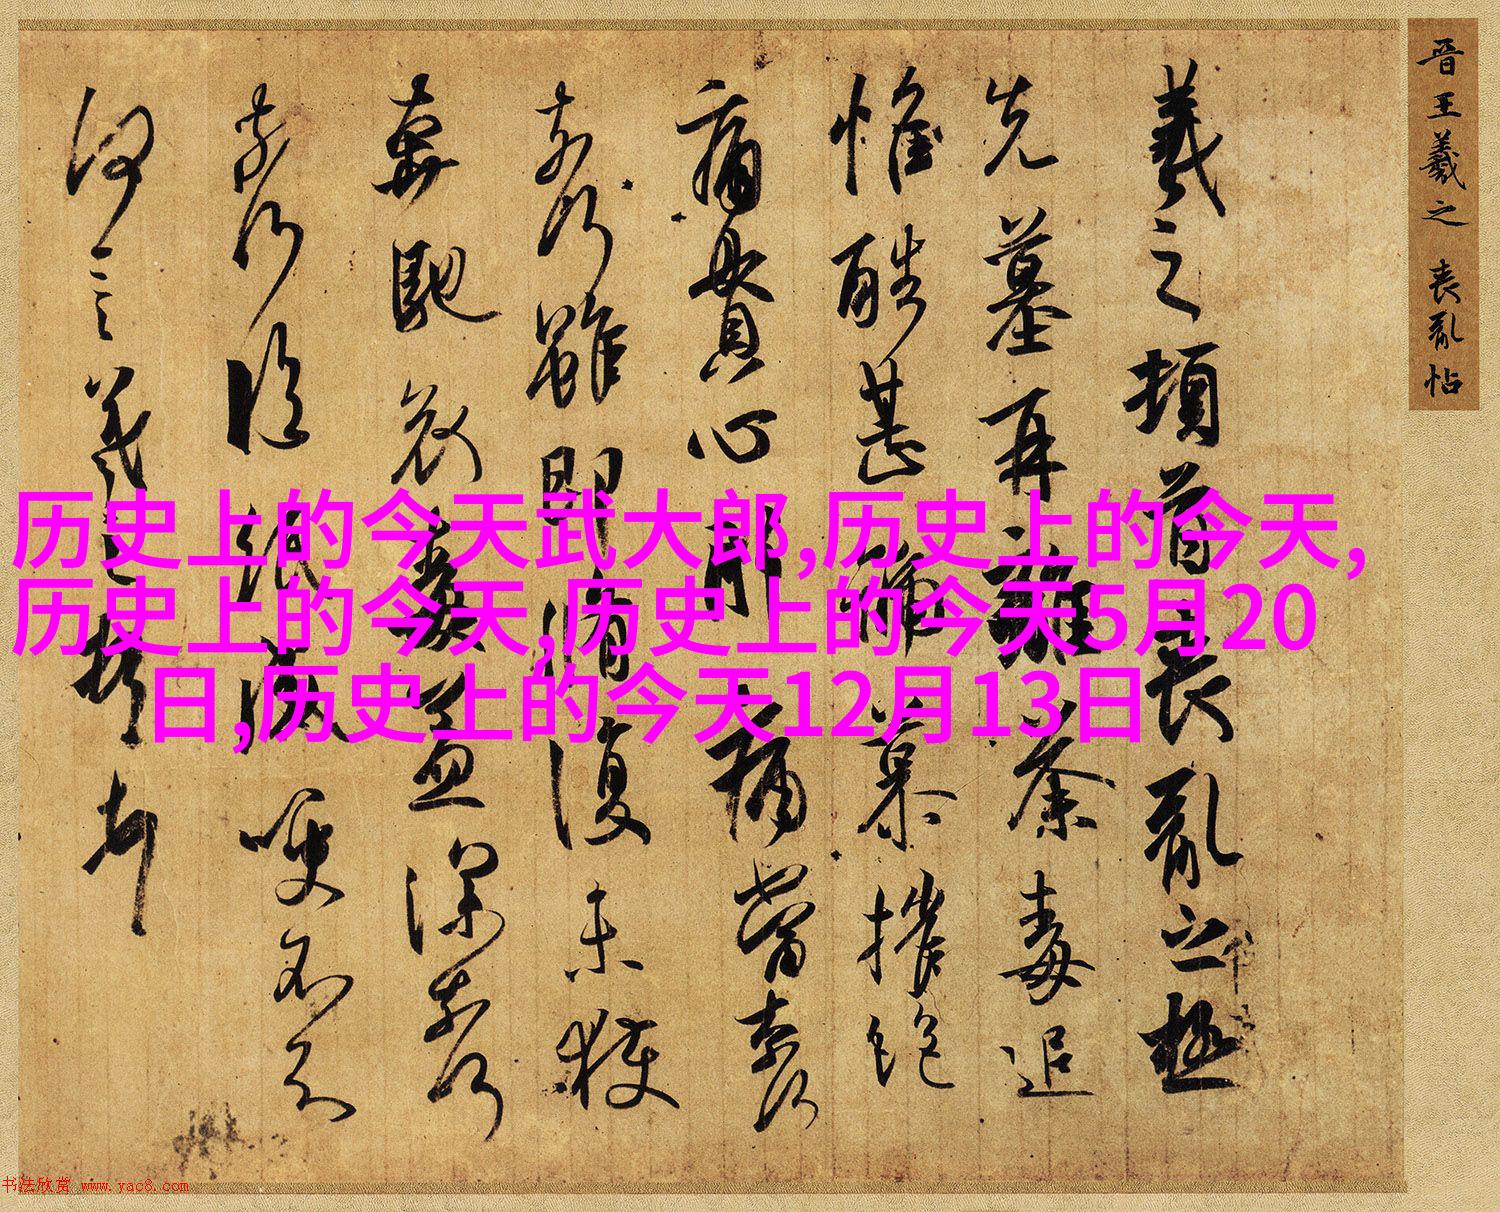 晋王羲之 喪亂帖
羲之頓首喪亂之極
先墓再離荼毒追
惟酷甚號慕摧絕
痛貫心肝痛當奈何
奈何雖即脩復未獲
奔馳哀毒益深奈何
奈何臨紙感哽不知
何言羲之頓首頓首
历史上的今天武大郎,历史上的今天,
历史上的今天,历史上的今天5月20
日,历史上的今天12月13日
书法欣赏 www.yac8.com